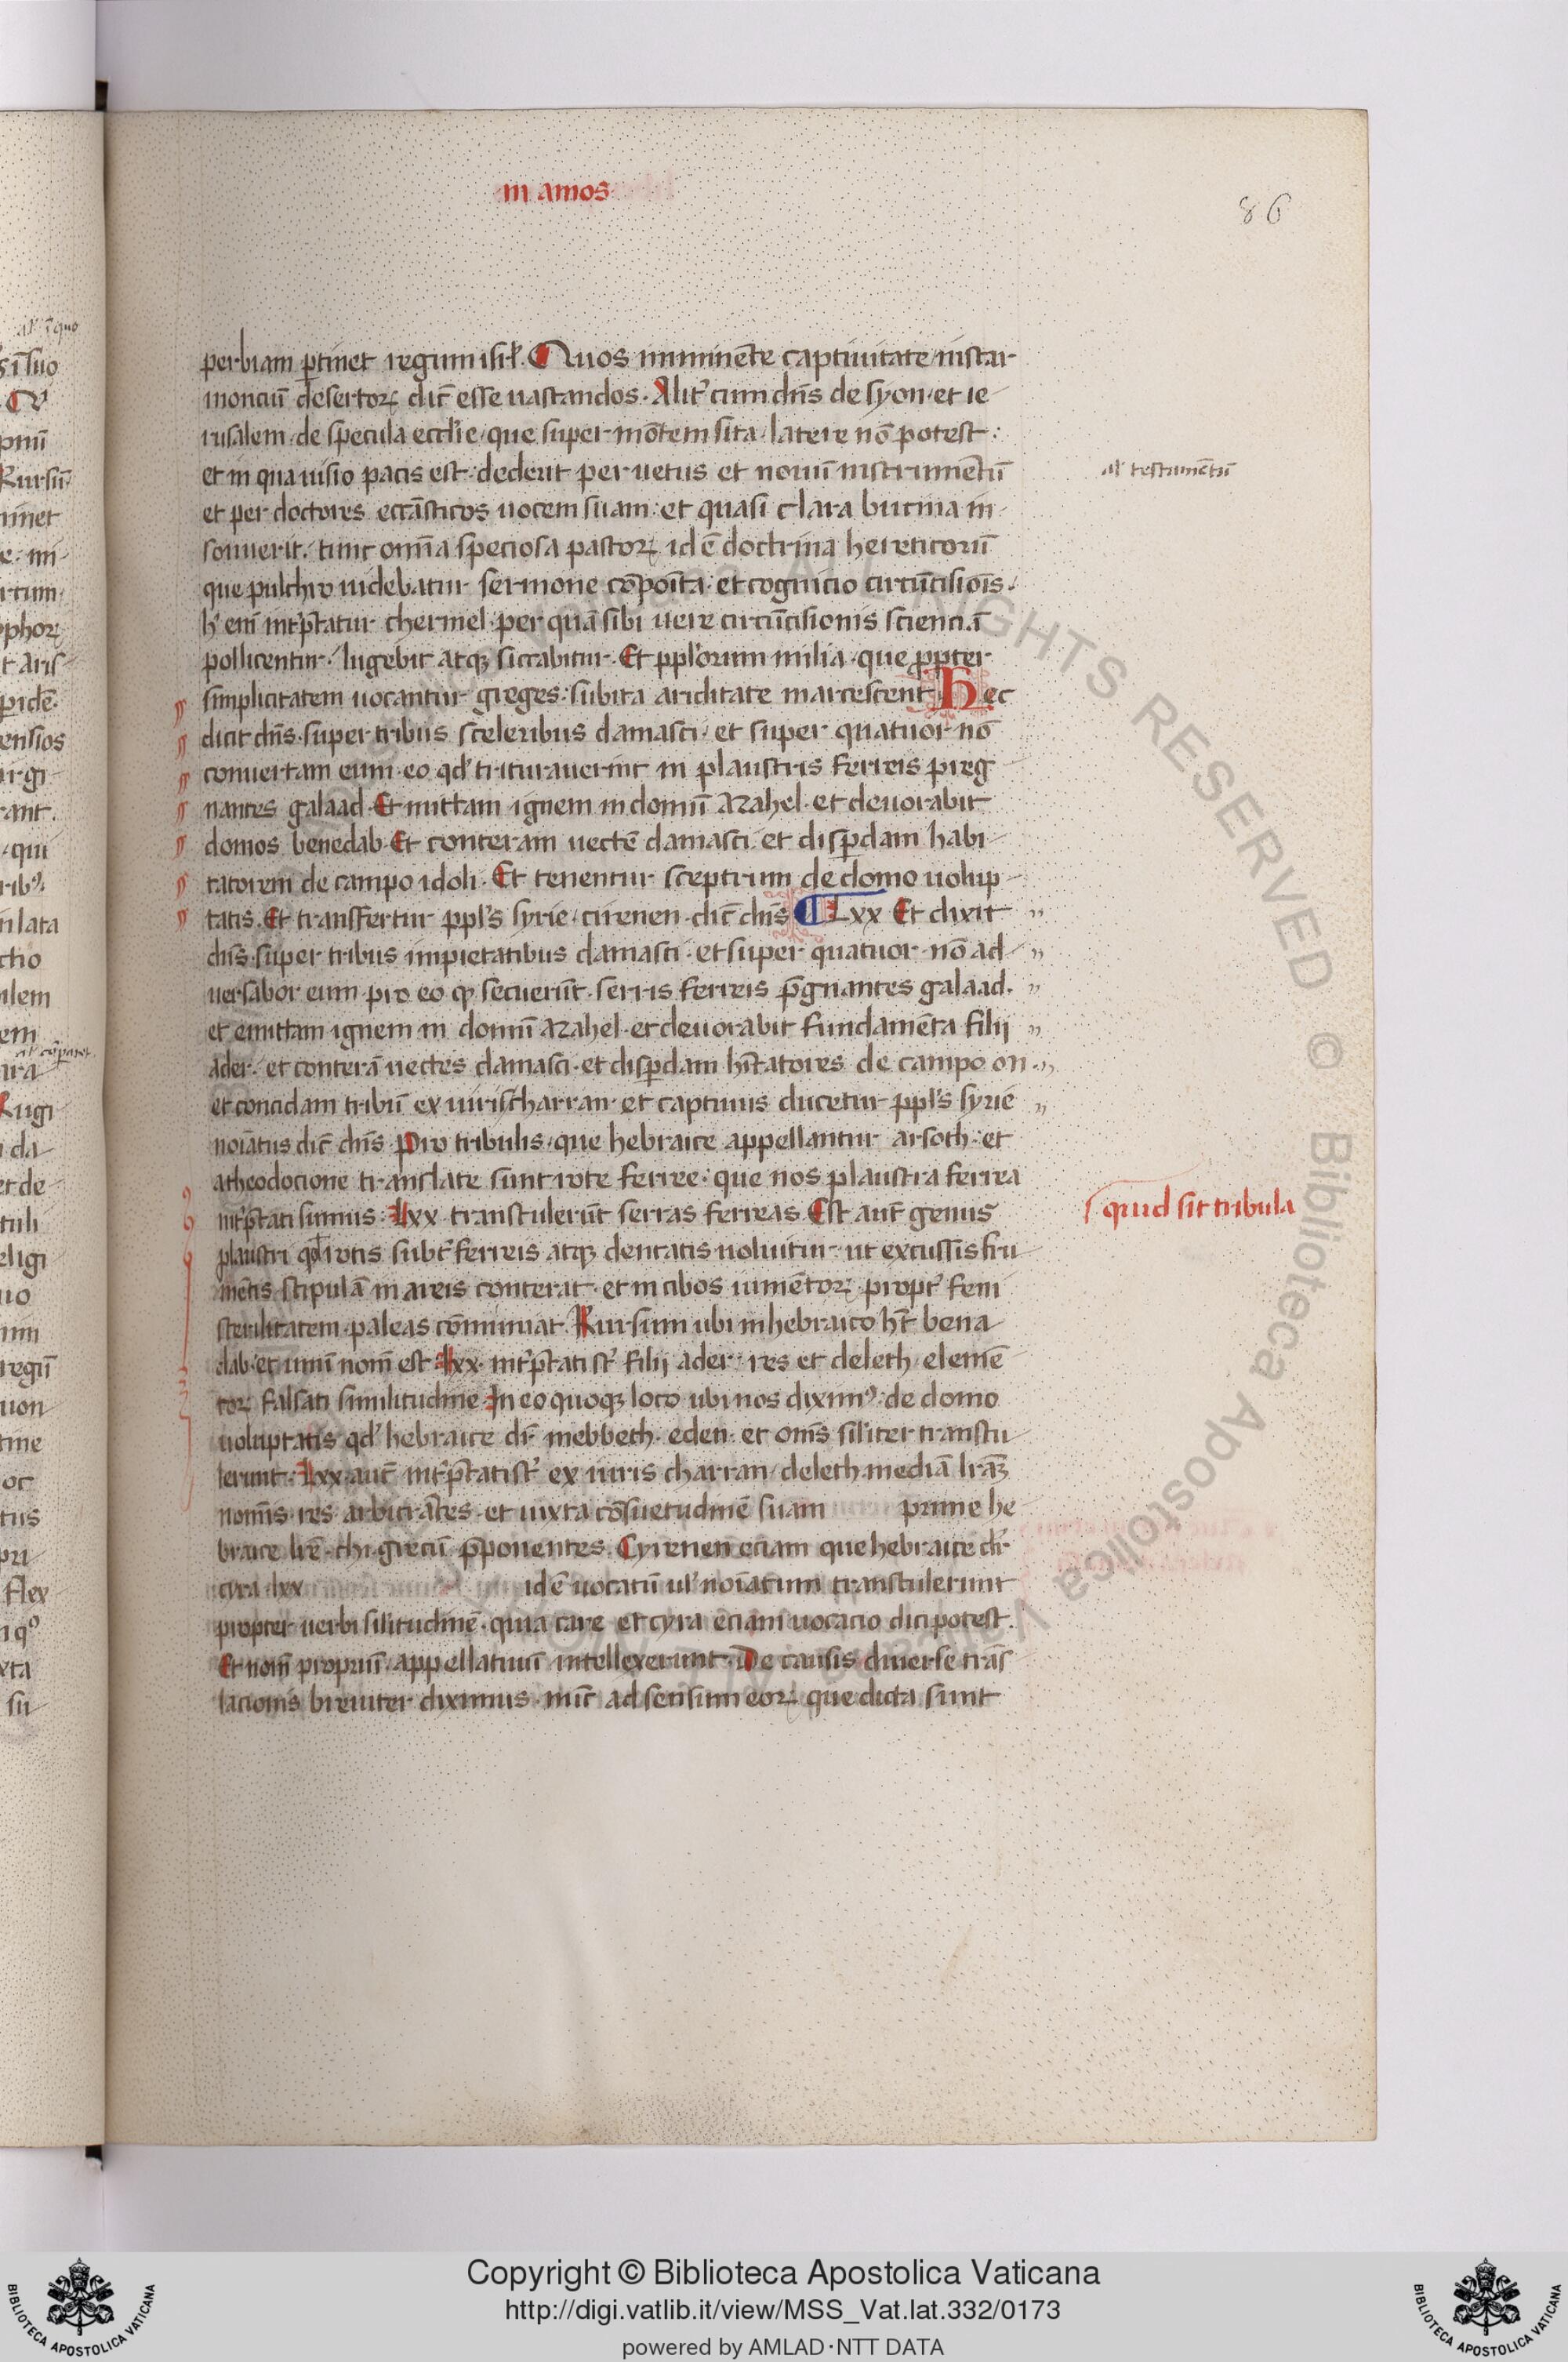 in amos
86
perbiam ꝑtinet regum isrł. Quos imminēte captiuitate instar
montiū desertoꝝ dic̄ esse uastandos. Alit̓ cum dn̄s de syon et ie
rusalem de specula eccl̄ie que super mōtem sita latere nō potest:
et in qua uisio pacis est: dederit per uetus et nouū instrumētū
al̓ testamētū
et per doctores eccl̄āsticos uocem suam: et quasi clara bucina in
sonuerit. tunc omīa speciosa pastoꝝ id ē doctrina hereticorū
que pulchro uidebatur sermone cōpoīta: et cognicio circūcisiōis.
h̓ enī int̓p̄tatur chermel. per quā sibi uere circūcisionis scienciā
pollicentur. lugebit atqꝫ siccabitur. Et ppl̓orum milia que ꝓpter
simplicitatem uocantur greges: subita ariditate marcescent Hec
dicit dn̄s. super tribus sceleribus damasci et super quatuor nō
conuertam eum. eo qd̓ triturauerint in plaustris ferreis preg
nantes galaad. Et mittam ignem in domū azahel. et deuorabit
domos benedab. Et conteram uectē damasci. et disꝑdam habi
tatorem de campo idoli. Et tenentur sceptrum de domo uolup
tatis. Et transfertur ppl̓s syrie cirenen dic̄ dn̄s Lxx Et dixit
dn̄s. super tribus impietatibus damasci. et super quatuor nō ad
uersabor eum. pro eo ꝙ secuerūt. serris ferreis p̄gnantes galaad.
et emittam ignem in domū azahel. et deuorabit fundamēta filij
ader. et conterā uectes damasci. et disꝑdam hītatores de campo on.
et concidam tribū ex uiris charran. et captiuus ducetur ppl̓s syrie
noīatus dic̄ dn̄s. Pro tribulis que hebraice appellantur arsoth: et
a theodocione translate sunt rote ferree: que nos plaustra ferrea
int̓p̄tati sumus: Lxx transtulerūt serras ferreas. Est aut̄ genus
quid sit tribula
plaustri qd̓ rotis subt̓ ferreis atqꝫ dentatis uoluitur. ut excussis fru
mētis. stipulā in areis conterat. et in cibos iumētoꝝ propt̓ feni
sterilitatem paleas cōminuat. Rursum ubi in hebraico hr̄ bena
dab. et unū nom̄ est. Lxx. int̓p̄tati st̓ filij ader: res et deleth elemē
toꝝ falsati similitudine. In eo quoqꝫ loco ubi nos diximꝰ. de domo
uoluptatis qd̓ hebraice dr̄ mebbeth. eden. et om̄s sil̓iter transtu
lerunt. Lxx. aut̄ int̓p̄tati st̓ ex uiris charran. deleth mediā lr̄aꝫ
nomīs. res arbitrātes. et iuxta cōsuetudinē suam prime he
braice lr̄e. chi. grecū p̄ponentes. Cyrenen eciam que hebraice dr̄
cyra lxx id ē uocatū ul̓ noīatum transtulerunt
propter uerbi sil̓itudinē. quia care et cyra eciam uocacio dici potest.
Et nom̄ propriū appellatiuū intellexerunt. De causis diuerse trās
lacionis breuiter diximus. nūc ad sensum eoꝝ que dicta sunt
ALL RIGHTS RESERVED © Biblioteca Apostolica Vaticana
Copyright © Biblioteca Apostolica Vaticana
http://digi.vatlib.it/view/MSS_Vat.lat.332/0173
powered by AMLAD·NTT DATA
BIBLIOTECA APOSTOLICA VATICANA
BIBLIOTECA APOSTOLICA VATICANA